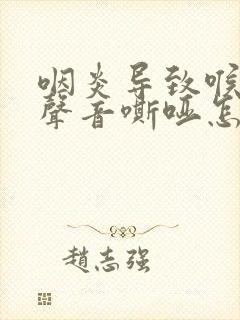 咽炎导致喉
聲音嘶哑怎
趙志强